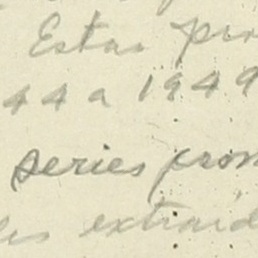 Estas pro
44 a 1949
series prom
les extraíd